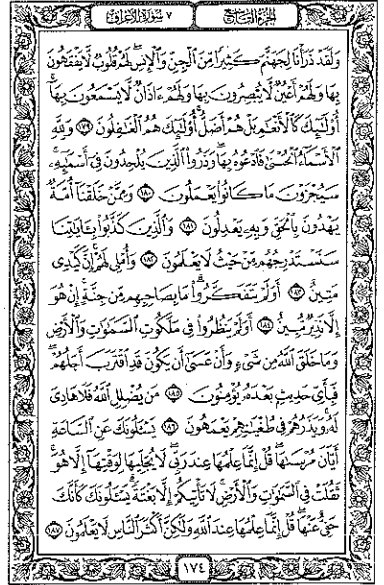 الجزء التاسع ٧ سورة الأعراف
وَلَقَدْ ذَرَأْنَا لِجَهَنَّمَ كَثِيرًا مِّنَ ٱلْجِنِّ وَٱلْإِنسِ ۖ لَهُمْ قُلُوبٌ لَّا يَفْقَهُونَ
بِهَا وَلَهُمْ أَعْيُنٌ لَّا يُبْصِرُونَ بِهَا وَلَهُمْ ءَاذَانٌ لَّا يَسْمَعُونَ بِهَآ ۚ
أُو۟لَٰٓئِكَ كَٱلْأَنْعَٰمِ بَلْ هُمْ أَضَلُّ ۚ أُو۟لَٰٓئِكَ هُمُ ٱلْغَٰفِلُونَ ١٧٩ وَلِلَّهِ
ٱلْأَسْمَآءُ ٱلْحُسْنَىٰ فَٱدْعُوهُ بِهَا ۖ وَذَرُوا۟ ٱلَّذِينَ يُلْحِدُونَ فِىٓ أَسْمَٰٓئِهِۦ ۚ
سَيُجْزَوْنَ مَا كَانُوا۟ يَعْمَلُونَ ١٨٠ وَمِمَّنْ خَلَقْنَآ أُمَّةٌ
يَهْدُونَ بِٱلْحَقِّ وَبِهِۦ يَعْدِلُونَ ١٨١ وَٱلَّذِينَ كَذَّبُوا۟ بِـَٔايَٰتِنَا
سَنَسْتَدْرِجُهُم مِّنْ حَيْثُ لَا يَعْلَمُونَ ١٨٢ وَأُمْلِى لَهُمْ ۚ إِنَّ كَيْدِى
مَتِينٌ ١٨٣ أَوَلَمْ يَتَفَكَّرُوا۟ ۗ مَا بِصَاحِبِهِم مِّن جِنَّةٍ ۚ إِنْ هُوَ
إِلَّا نَذِيرٌ مُّبِينٌ ١٨٤ أَوَلَمْ يَنظُرُوا۟ فِى مَلَكُوتِ ٱلسَّمَٰوَٰتِ وَٱلْأَرْضِ
وَمَا خَلَقَ ٱللَّهُ مِن شَىْءٍ وَأَنْ عَسَىٰٓ أَن يَكُونَ قَدِ ٱقْتَرَبَ أَجَلُهُمْ ۖ
فَبِأَىِّ حَدِيثٍۭ بَعْدَهُۥ يُؤْمِنُونَ ١٨٥ مَن يُضْلِلِ ٱللَّهُ فَلَا هَادِىَ
لَهُۥ ۚ وَيَذَرُهُمْ فِى طُغْيَٰنِهِمْ يَعْمَهُونَ ١٨٦ يَسْـَٔلُونَكَ عَنِ ٱلسَّاعَةِ
أَيَّانَ مُرْسَىٰهَا ۖ قُلْ إِنَّمَا عِلْمُهَا عِندَ رَبِّى ۖ لَا يُجَلِّيهَا لِوَقْتِهَآ إِلَّا هُوَ ۚ
ثَقُلَتْ فِى ٱلسَّمَٰوَٰتِ وَٱلْأَرْضِ ۚ لَا تَأْتِيكُمْ إِلَّا بَغْتَةً ۗ يَسْـَٔلُونَكَ كَأَنَّكَ
حَفِىٌّ عَنْهَا ۖ قُلْ إِنَّمَا عِلْمُهَا عِندَ ٱللَّهِ وَلَٰكِنَّ أَكْثَرَ ٱلنَّاسِ لَا يَعْلَمُونَ ١٨٧
١٧٤